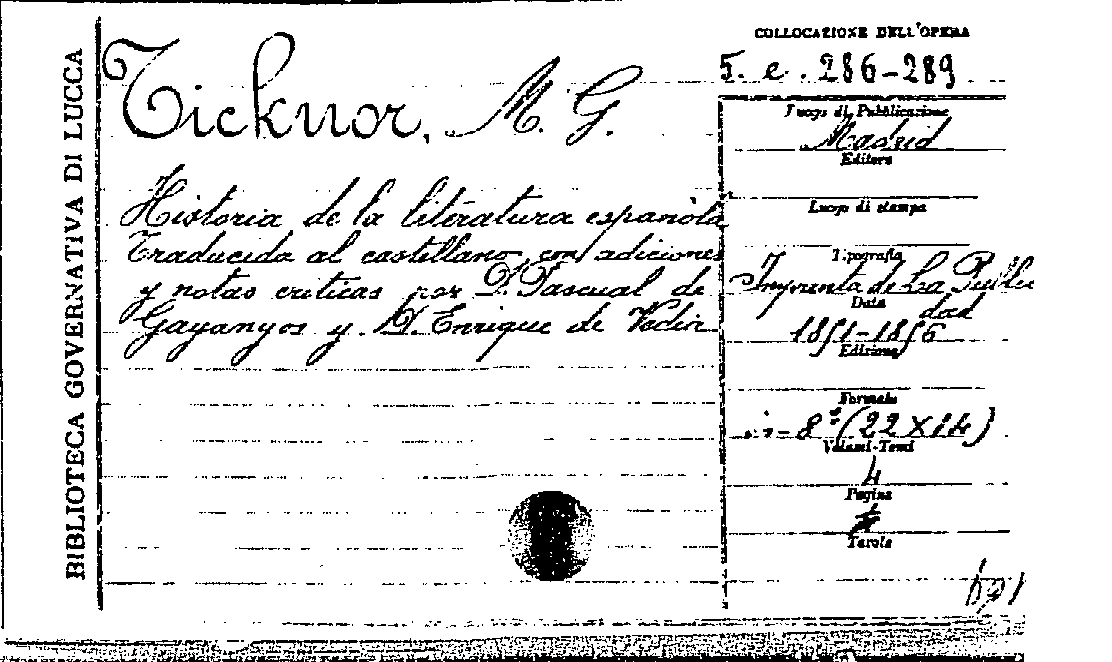 BIBLIOTECA GOVERNATIVA DI LUCCA
Ticknor, M. G.
Historia de la literatura española
Traducida al castellano, con adiciones
y notas criticas por D. Pascual de
Gayanyos y D. Enrique de Vedia
COLLOCAZIONE DELL'OPERA
5. e. 286-289
Luogo di Pubblicazione
Madrid
Editore
Luogo di stampa
Tipografia
Imprenta de La Publici
dad
Data
1851-1856
Edizione
Formato
in-8° (22 x 14)
Volumi-Tomi
4
Pagine
Tavole